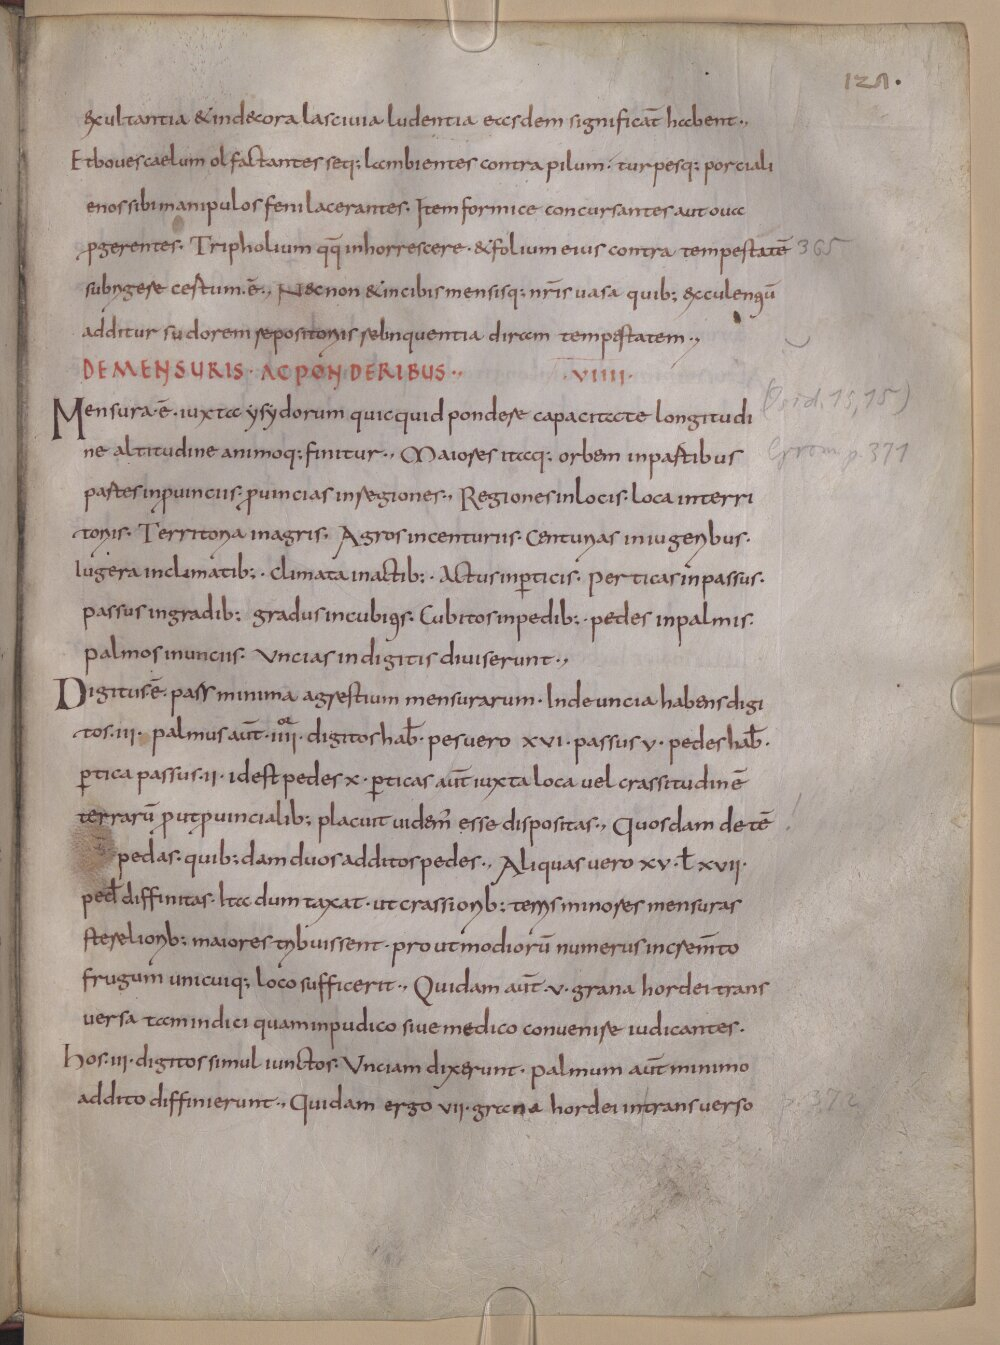 121.
excultantia & indecora lascivia ludentia eadem significat̄ habent.,
Et boves caelum olfactantes seq; lambientes contra pilum. turpesq; porci ali
enos sibi manipulos feni lacerantes. Item formice concursantes aut ova
p̱gerentes. Tripholium qq̄ inhorrescere. & folium eius contra tempestatē
365
subrigere certum .ē., Necnon & in cibis mensisq; nr̄is vasa quib; &culentū
additur sudorem repositoriis relinquentia diram tempestatem.,
DE MENSURIS. AC PONDERIBUS., .VIIII.
Mensura .ē. iuxta ysydorum quicquid pondere capacitate longitudi
(Isid. 15, 15)
ne altitudine animoq; finitur., Maiores itaq; orbem in partibus
Grom. p. 371
partes in p̱uinciis. p̱uincias in regiones., Regiones in locis. loca in terri
toriis. Territoria in agris. Agros in centuriis. Centurias in iugeribus.
Iugera in climatib;. climata in actib;. Actus in p̱ticis. perticas in passus.
passus in gradib; gradus in cubitis. Cubitos in pedib;. pedes in palmis.
palmos in unciis. Uncias in digitis diviserunt.,
Digitus ē. pars minima agrestium mensurarum. Inde uncia habens digi
tos .iii. palmus aut̄ .iiii. digitos hab̄. pes vero xvi. passus v. pedes hab̄.
p̱tica passus .ii. id est pedes x. p̱ticas aut̄ iuxta loca vel crassitudinē
terrarū p̱ut p̱uincialib; placuit videm̄ esse dispositas., Quosdam de tē
pedas. quib;dam duos additos pedes., Aliquas vero xv. ł xvii.
ped̄ diffinitas. Ita dum taxat. ut crassiorib; terris minores mensuras
stereliorib; maiores tribuissent. prout modiorū numerus increm̄to
frugum unicuiq; loco sufficerit., Quidam aut̄ .v. grana hordei trans
versa tam indici quam inpudico sive medico convenire iudicantes.
hos .iii. digitos simul iunctos. Unciam dixerunt. palmum aut̄ minimo
addito diffinierunt., Quidam ergo vii. grana hordei in transverso
p. 372